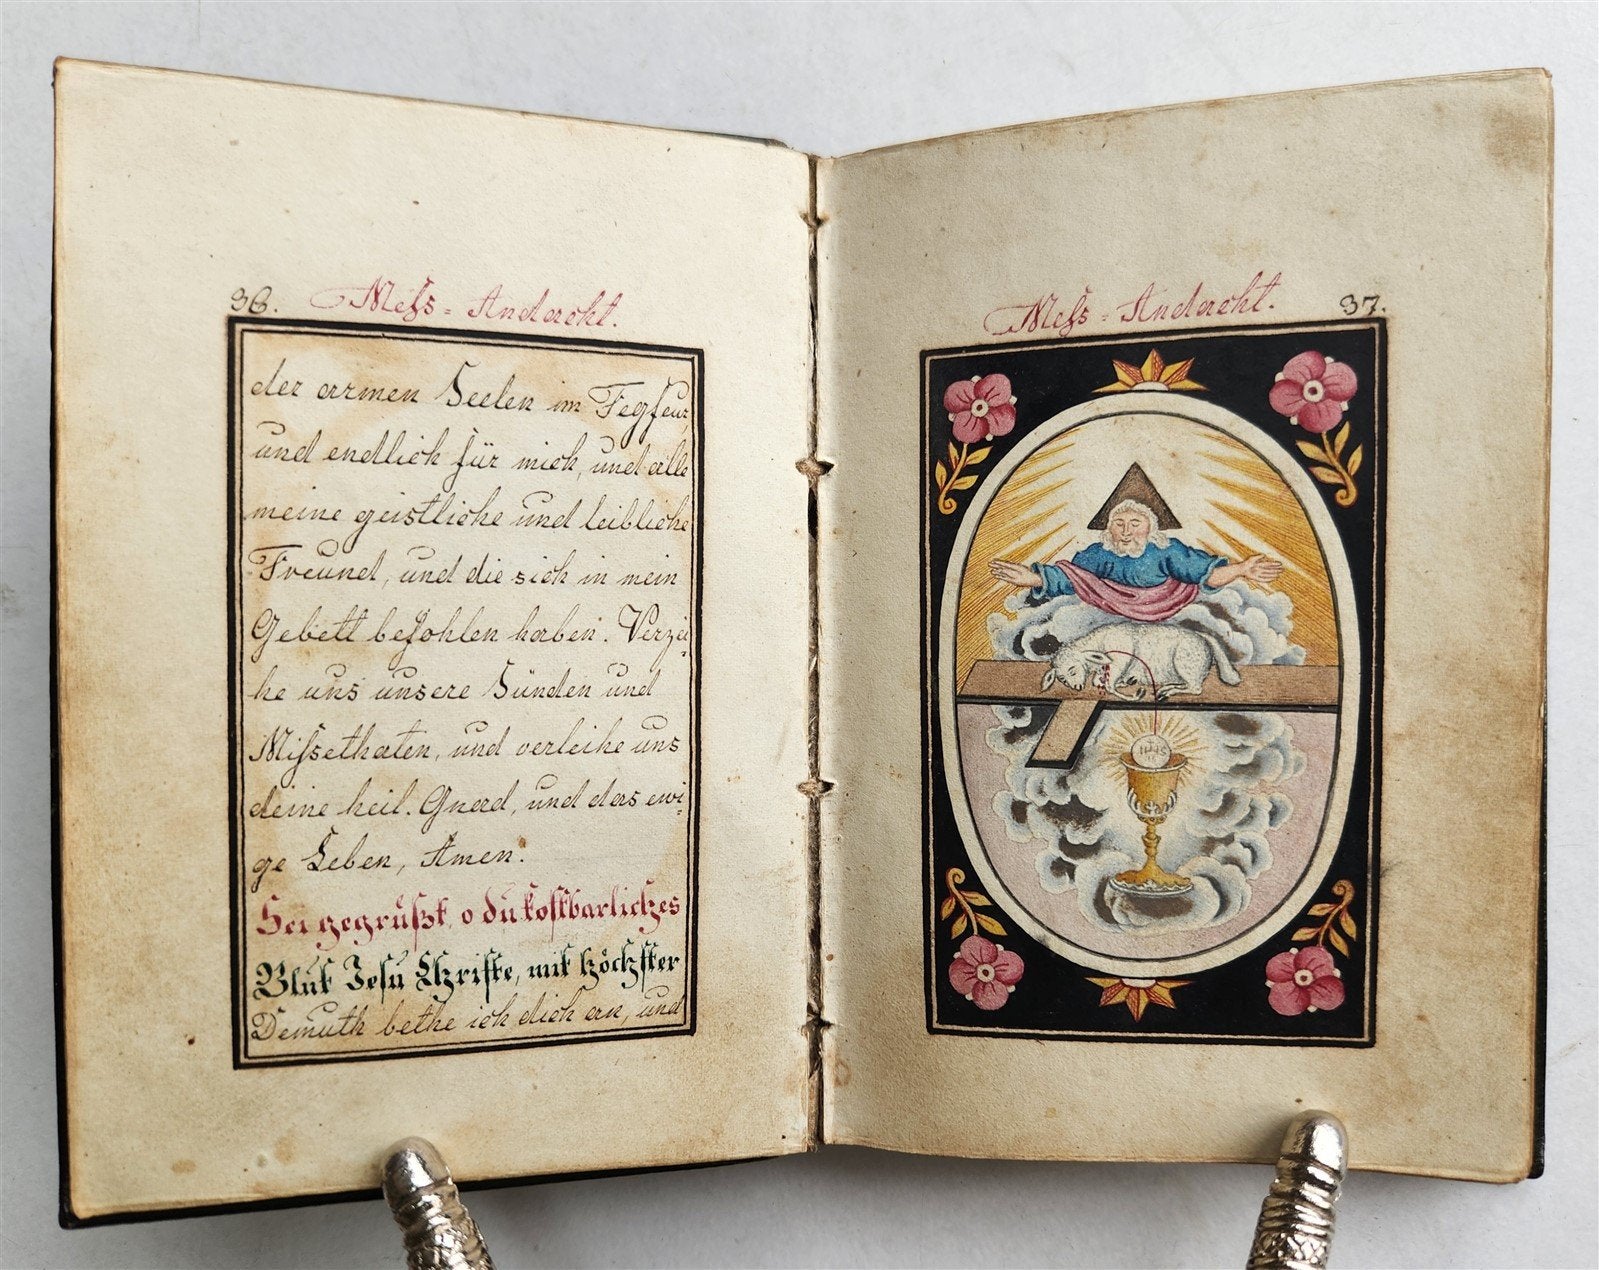 36. Mess-Andacht.
der armen Seelen im Fegfeur,
und endlich für mich, und alle
meine geistliche und leibliche
Freund, und die sich in mein
Gebett befohlen haben. Verzei-
he uns unsere Sünden und
Missethaten, und verleihe uns
deine heil. Gnad, und das ewi-
ge Leben, Amen.
Sei gegrüßt, o du kostbarliches
Blut Jesu Christe, mit höchster
Demuth bethe ich dich an, und
Mess-Andacht. 37.
IHS